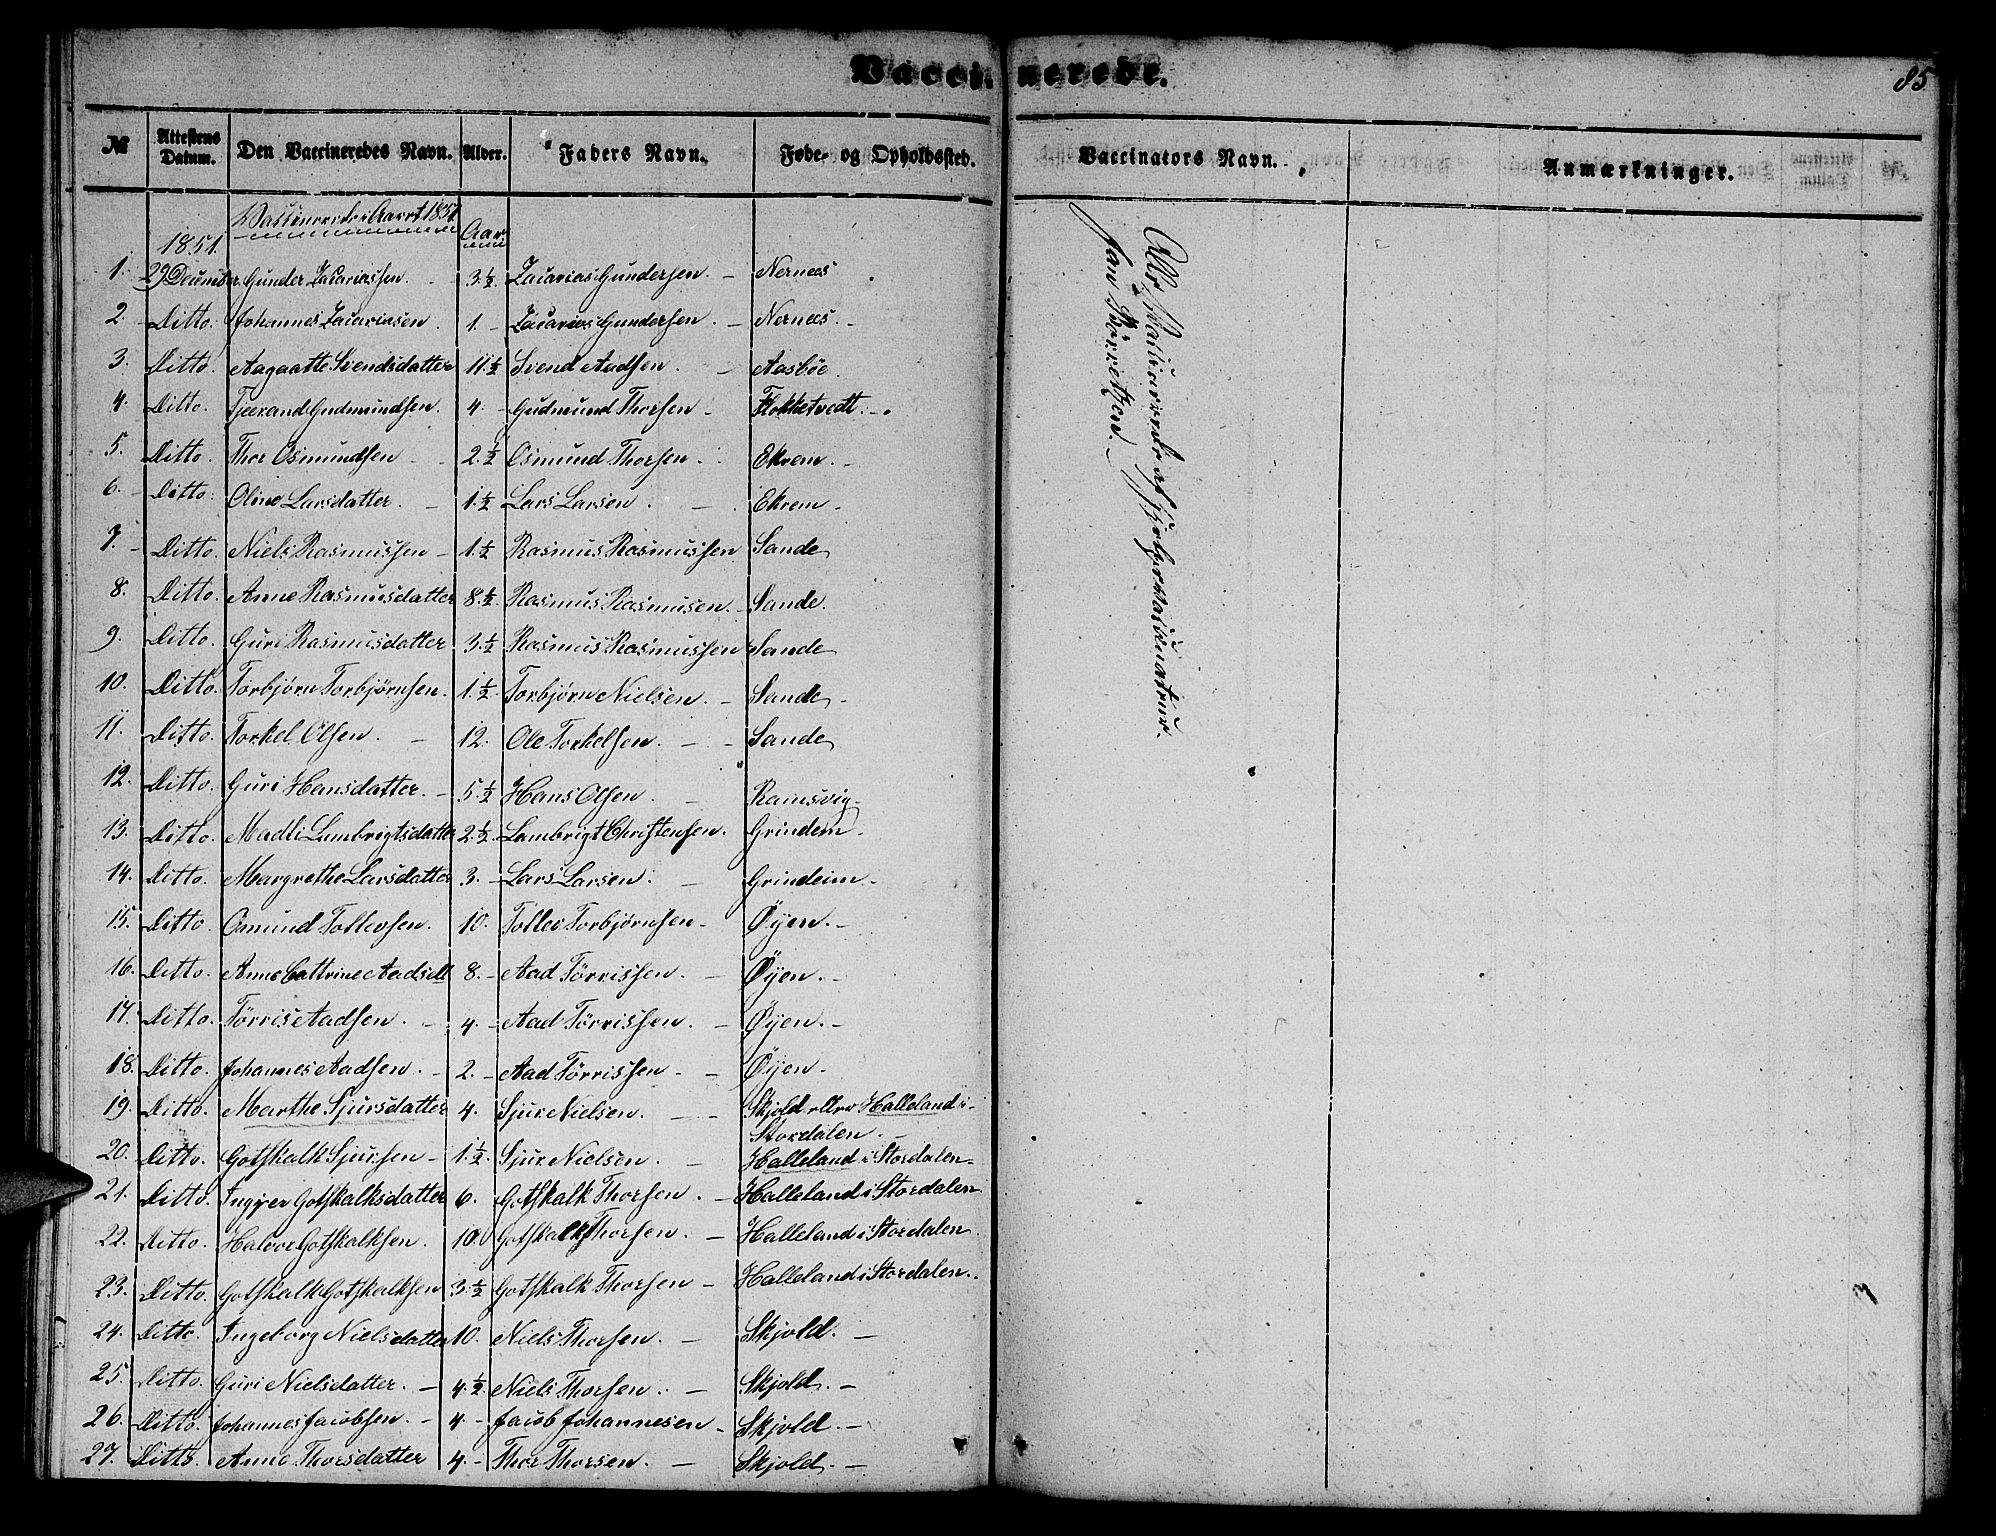 Vaccinerede.
85
№ Attestens Datum. Den Vaccineredes Navn. Alder. Faders Navn. Føde- og Opholdssted. Vaccinators Navn. Anmærkninger.
1851. Aar
1. 29 December Gunder Zacariassen. 3½. Zacarias Gundersen. Nernees
2. Ditto. Johannes Zacariasen. 1. Zacarias Gundersen. Nernees.
3. Ditto. Aagaatte Svendsdatter 11½ Svend Aadsen. Aasbøe.
4. Ditto. Tjerand Gudmundsen. 4. Gudmund Thorsen Flokketvedt.
5. Ditto. Thor Osmundsen 2.½ Osmund Thorsen. Ekrem.
6. Ditto. Oline Larsdatter. 1.½ Lars Larsen. Ekrem.
7. Ditto. Niels Rasmussen 1.½ Rasmus Rasmussen Sande
8. Ditto. Anne Rasmusdatter 8½. Rasmus Rasmusen. Sande.
9. Ditto. Guri Rasmusdatter 3.½ Rasmus Rasmussen Sande
10. Ditto. Torbjørn Torbjørnsen. 1.½ Torbjørn Nielsen. Sande
11. Ditto. Torkel Olsen. 12. Ole Torkelsen. Sande
12. Ditto. Guri Hansdatter. 5½ Hans Olsen. Ramsvig
13. Ditto. Madli Lambrigtsdatter 2½. Lambrigt Christensen. Grindem
14. Ditto. Margrethe Larsdatter 3. Lars Larsen. Grindeim
15. Ditto. Osmund Tollevsen. 10. Tollev Torbjørnsen Øyen.
16. Ditto. Anne Cattrine Aadsdtt 8. Aad Tørrissen. Øyen.
17. Ditto. Tørris Aadsen. 4. Aad Tørrissen. Øyen.
18. Ditto. Johannes Aadsen. 2. Aad Tørrissen. Øyen
19. Ditto. Marthe Sjursdatter 4. Sjur Nielsen. Skjold eller Halleland i
Stordalen.
20. Ditto. Gotskalk Sjursen 1.½. Sjur Nielsen. Halleland i Stordalen
21. Ditto. Ingjer Gotskalksdatter 6. Gotskalk Thorsen. Halleland i Stordalen.
22. Ditto. Halvor Gotskalksen. 10. Gotskalk Thorsen. Halleland i Stordalen.
23. Ditto. Gotskalk Gotskalksen 3.½ Gotskalk Thorsen Halleland i Stordalen.
24. Ditto. Ingeborg Nielsdatter 10. Niels Thorsen. Skjold.
25. Ditto. Guri Nielsdatter. 4.½ Niels Thorsen. Skjold.
26. Ditto. Johannes Jacobsen. 4. Jacob Johannesen Skjold.
27. Ditto. Anne Thorsdatter 4. Thor Thorsen. Skjold.